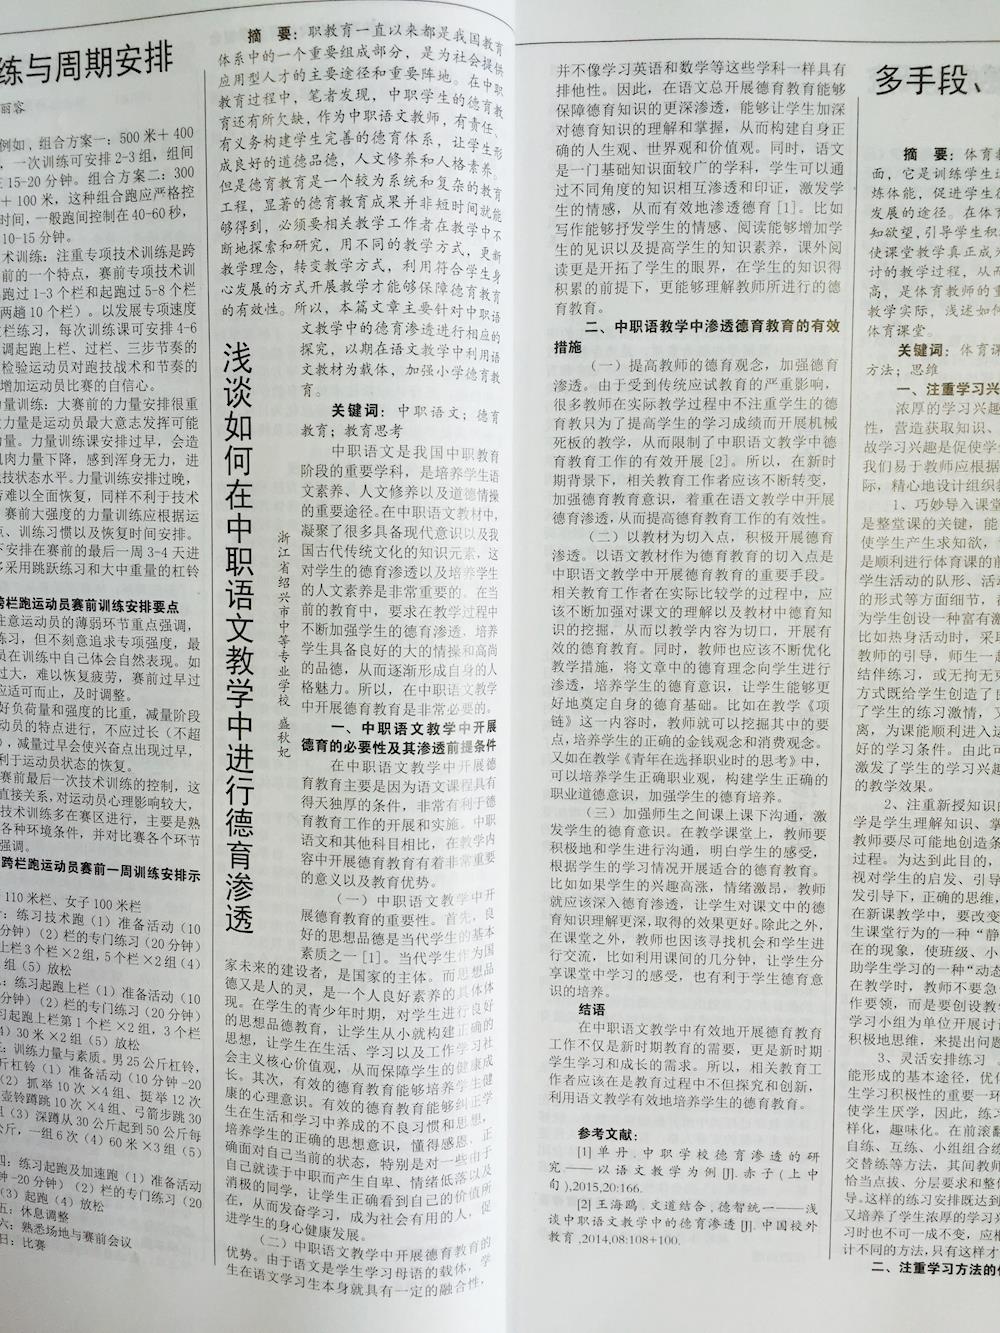 练与周期安排
丽容
例如，组合方案一：500 米＋400
，一次训练可安排 2-3 组，组间
15-20 分钟。组合方案二：300
＋100 米，这种组合跑应严格控
时间，一般跑间控制在 40-60 秒，
10-15 分钟。
术训练：注重专项技术训练是跨
前的一个特点，赛前专项技术训
跑过 1-3 个栏和起跑过 5-8 个栏
两趟 10 个栏）。以发展专项速度
栏练习，每次训练课可安排 4-6
调起跑上栏、过栏、三步节奏的
检验运动员对跑技战术和节奏的
增加运动员比赛的自信心。
量训练：大赛前的力量安排很重
力量是运动员最大意志发挥可能
力量。力量训练课安排过早，会造
肌肉力量下降，感到浑身无力，进
技状态水平。力量训练安排过晚，
难以全面恢复，同样不利于技术
赛前大强度的力量训练应根据运
、训练习惯以及恢复时间安排。
安排在赛前的最后一周 3-4 天进
多采用跳跃练习和大中重量的杠铃
跨栏跑运动员赛前训练安排要点
注意运动员的薄弱环节重点强调，
练习，但不刻意追求专项强度，最
员在训练中自己体会自然表现。如
过大，难以恢复疲劳，赛前过早过
应适可而止，及时调整。
好负荷量和强度的比重，减量阶段
动员的特点进行，不应过长（不超
），减量过早会使兴奋点出现过早，
利于运动员状态的恢复。
赛前最后一次技术训练的控制，这
直接关系，对运动员心理影响较大，
技术训练多在赛区进行，主要是熟
各种环境条件，并对比赛各个环节
强调。
跨栏跑运动员赛前一周训练安排示
110 米栏、女子 100 米栏
：练习技术跑（1）准备活动（10
分钟）（2）栏的专门练习（20 分钟）
上栏 3 个栏×2 组，5 个栏×2 组（4）
组（5）放松
：练习起跑上栏（1）准备活动（10
分钟）（2）栏的专门练习（20 分钟）
习起跑上栏第 1 个栏×2 组，3 个栏
4）30 米×2 组（5）放松
：训练力量与素质。男 25 公斤杠铃，
斤杠铃（1）准备活动（10 分钟-20
（2）抓举 10 次×4 组、挺举 12 次
壶铃蹲跳 10 次×4 组、弓箭步跳 30
组（3）深蹲从 30 公斤起到 50 公斤每
公斤，一组 6 次（4）60 米×3 组（5）
四：练习起跑及加速跑（1）准备活动
钟-20 分钟）（2）栏的专门练习（20
（3）起跑（4）放松
五：休息调整
六：熟悉场地与赛前会议
日：比赛
浅谈如何在中职语文教学中进行德育渗透
浙江省绍兴市中等专业学校 盛秋妃
摘　要：职教育一直以来都是我国教育
体系中的一个重要组成部分，是为社会提供
应用型人才的主要途径和重要阵地。在中职
教育过程中，笔者发现，中职学生的德育教
育还有所欠缺，作为中职语文教师，有责任、
有义务构建学生完善的德育体系，让学生形
成良好的道德品德，人文修养和人格素养。
但是德育教育是一个较为系统和复杂的教育
工程，显著的德育教育成果并非短时间就能
够得到，必须要相关教学工作者在教学中不
断地探索和研究，用不同的教学方式，更新
教学理念，转变教学方式，利用符合学生身
心发展的方式开展教学才能够保障德育教育
的有效性。所以，本篇文章主要针对中职语
文教学中的德育渗透进行相应的
探究，以期在语文教学中利用语
文教材为载体，加强小学德育教
育。
关键词：中职语文；德育
教育；教育思考
中职语文是我国中职教育
阶段的重要学科，是培养学生语
文素养、人文修养以及道德情操
的重要途径。在中职语文教材中，
凝聚了很多具备现代意识以及我
国古代传统文化的知识元素，这
对学生的德育渗透以及培养学生
的人文素养是非常重要的。在当
前的教育中，要求在教学过程中
不断加强学生的德育渗透，培养
学生具备良好的大的情操和高尚
的品德，从而逐渐形成自身的人
格魅力。所以，在中职语文教学
中开展德育教育是非常必要的。
一、中职语文教学中开展
德育的必要性及其渗透前提条件
在中职语文教学中开展德
育教育主要是因为语文课程具有
得天独厚的条件，非常有利于德
育教育工作的开展和实施。中职
语文和其他科目相比，在教学内
容中开展德育教育有着非常重要
的意义以及教育优势。
（一）中职语文教学中开
展德育教育的重要性。首先，良
好的思想品德是当代学生的基本
素质之一 [1]。当代学生作为国
家未来的建设者，是国家的主体。而思想品
德又是人的灵，是一个人良好素养的具体体
现。在学生的青少年时期，对学生进行良好
的思想品德教育，让学生从小就构建正确的
思想，让学生在生活、学习以及工作学习社
会主义核心价值观，从而保障学生的健康成
长。其次，有效的德育教育能够培养学生健
康的心理意识。有效的德育教育能够纠正学
生在生活和学习中养成的不良习惯和思想，
培养学生的正确的思想意识，懂得感恩、正
确面对自己当前的状态，特别是对一些由于
自己就读于中职而产生自卑、情绪低落以及
消极的同学，让学生正确看到自己的价值所
在，从而发奋学习，成为社会有用的人，促
进学生的身心健康发展。
（二）中职语文教学中开展德育教育的
优势。由于语文是学生学习母语的载体，学
生在语文学习生本身就具有一定的融合性，
并不像学习英语和数学等这些学科一样具有
排他性。因此，在语文总开展德育教育能够
保障德育知识的更深渗透，能够让学生加深
对德育知识的理解和掌握，从而构建自身正
确的人生观、世界观和价值观。同时，语文
是一门基础知识面较广的学科，学生可以通
过不同角度的知识相互渗透和印证，激发学
生的情感，从而有效地渗透德育 [1]。比如
写作能够抒发学生的情感、阅读能够增加学
生的见识以及提高学生的知识素养，课外阅
读更是开拓了学生的眼界，在学生的知识得
积累的前提下，更能够理解教师所进行的德
育教育。
二、中职语教学中渗透德育教育的有效
措施
（一）提高教师的德育观念，加强德育
渗透。由于受到传统应试教育的严重影响，
很多教师在实际教学过程中不注重学生的德
育教只为了提高学生的学习成绩而开展机械
死板的教学，从而限制了中职语文教学中德
育教育工作的有效开展 [2]。所以，在新时
期背景下，相关教育工作者应该不断转变，
加强德育教育意识，着重在语文教学中开展
德育渗透，从而提高德育教育工作的有效性。
（二）以教材为切入点，积极开展德育
渗透。以语文教材作为德育教育的切入点是
中职语文教学中开展德育教育的重要手段。
相关教育工作者在实际比较学的过程中，应
该不断加强对课文的理解以及教材中德育知
识的挖掘，从而以教学内容为切口，开展有
效的德育教育。同时，教师也应该不断优化
教学措施，将文章中的德育理念向学生进行
渗透，培养学生的德育意识，让学生能够更
好地奠定自身的德育基础。比如在教学《项
链》这一内容时，教师就可以挖掘其中的要
点，培养学生的正确的金钱观念和消费观念。
又如在教学《青年在选择职业时的思考》中，
可以培养学生正确职业观，构建学生正确的
职业道德意识，加强学生的德育培养。
（三）加强师生之间课上课下沟通，激
发学生的德育意识。在教学课堂上，教师要
积极地和学生进行沟通，明白学生的感受，
根据学生的学习情况开展适合的德育教育。
比如如果学生的兴趣高涨，情绪激昂，教师
就应该深入德育渗透，让学生对课文中的德
育知识理解更深，取得的效果更好。除此之外，
在课堂之外，教师也因该寻找机会和学生进
行交流，比如利用课间的几分钟，让学生分
享课堂中学习的感受，也有利于学生德育意
识的培养。
结语
在中职语文教学中有效地开展德育教育
工作不仅是新时期教育的需要，更是新时期
学生学习和成长的需求。所以，相关教育工
作者应该在是教育过程中不但探究和创新，
利用语文教学有效地培养学生的德育教育。
参考文献：
[1] 单 丹 . 中 职 学 校 德 育 渗 透 的 研
究 —— 以 语 文 教 学 为 例 [J]. 赤 子（ 上 中
旬 ),2015,20:166.
[2] 王海鸥 . 文道结合，德智统一——浅
谈中职语文教学中的德育渗透 [J]. 中国校外
教育 ,2014,08:108+100.
多手段、
摘　要：体育教
面，它是训练学生运
炼体能，促进学生
发展的途径。在体育
知欲望，引导学生积
使课堂教学真正成为
讨的教学过程，从而
高，是体育教师的重
教学实际，浅述如何
体育课堂。
关键词：体育课
方法；思维
一、注重学习兴
浓厚的学习兴趣
性，营造获取知识、
故学习兴趣是促使学
我们易于教师应根据
际，精心地设计组织教
1、巧妙导入课堂
是整堂课的关键，能
使学生产生求知欲，
是顺利进行体育课的前
学生活动的队形、活动
的形式等方面细节，
为学生创设一种富有激
比如热身活动时，采取
教师的引导，师生一起
结伴练习，或无拘无束
方式既给学生创造了
了学生的练习激情，又
离，为课能顺利进入运
好的学习条件。由此可
激发了学生的学习兴趣
的教学效果。
2、注重新授知识的
学是学生理解知识、掌
教师要尽可能地创造条
过程。为达到此目的，
视对学生的启发、引导
发引导下，正确的思维，
在新课教学中，要改变
生课堂行为的一种“静
在的现象，使班级、小
助学生学习的一种“动态
在教学时，教师不要急
作要领，而是要创设教
学习小组为单位开展讨
积极地思维，来提出问题
3、灵活安排练习
能形成的基本途径，优
生学习积极性的重要一环
使学生厌学，因此，练习
样化，趣味化。在前滚翻
自练、互练、小组组合练
交替练等方法，其间教师
恰当点拔、分层要求和整体
导。这样的练习安排既达到
又培养了学生浓厚的学习兴
习时也不可一成不变，应根
计不同的方法，只有这样才
二、注重学习方法的